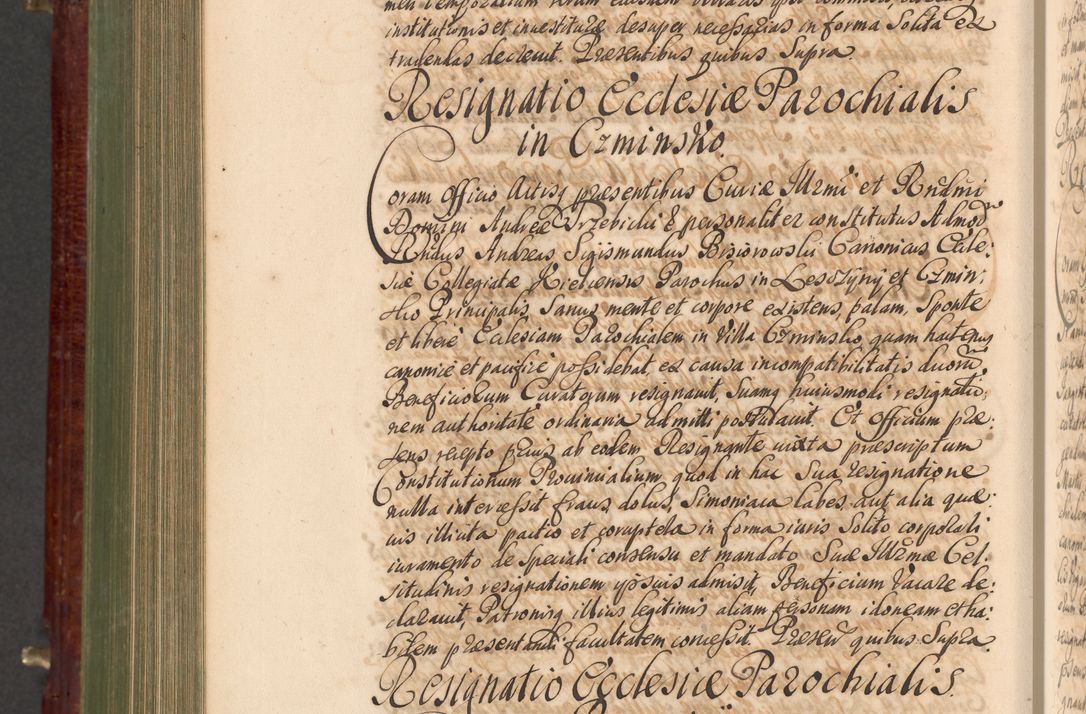 institutionis et investituræ desuper necessarias in forma Solita ex
tradendas decrevit. Præsentibus quibus Supra.
Resignatio Ecclesiæ Parochialis
in Czminsko.
Coram Officio Actisq præsentibus Curiæ Illrmi et Rndmi
Domini Andreæ Trzebicki & personaliter constitutus Admod
Rndus Andreas Sigismundus Bisiorowski Canonicus Eccle:
siæ Collegiatæ Kielcensis Parochus in Leszczyny et Czmin:
sko Principalis, Sanus mente et corpore existens, palam, Sponte
et libere Ecclesiam Parochialem in Villa Czminsko, quam hactenus
canonice et pacifice possidebat, ex causa incompatibilitatis duorum
Beneficiorum Curatorum resignavit, Suamq huiusmodi resignatio:
nem authoritate ordinaria admitti postulavit. Et Officium præ:
sens recepto prius ab eodem Resignante iuxta præscriptum
Constitutionum Provincialium quod in hac Sua resignatione
nulla intercessit fraus, dolus, Simoniaca labes, aut alia quæ:
vis illicita pactio et coruptela in forma iuris Solito corporali
iuramento de speciali consensu et mandato Suæ Illrmæ Cel:
situdinis resignationem ipsius admisit, Beneficium Vacare de:
claravit, Patronisq illius legitimis aliam personam idoneam et ha:
bilem præsentandi facultatem concessit. Præsen quibus Supra.
Resignatio Ecclesiæ Parochialis